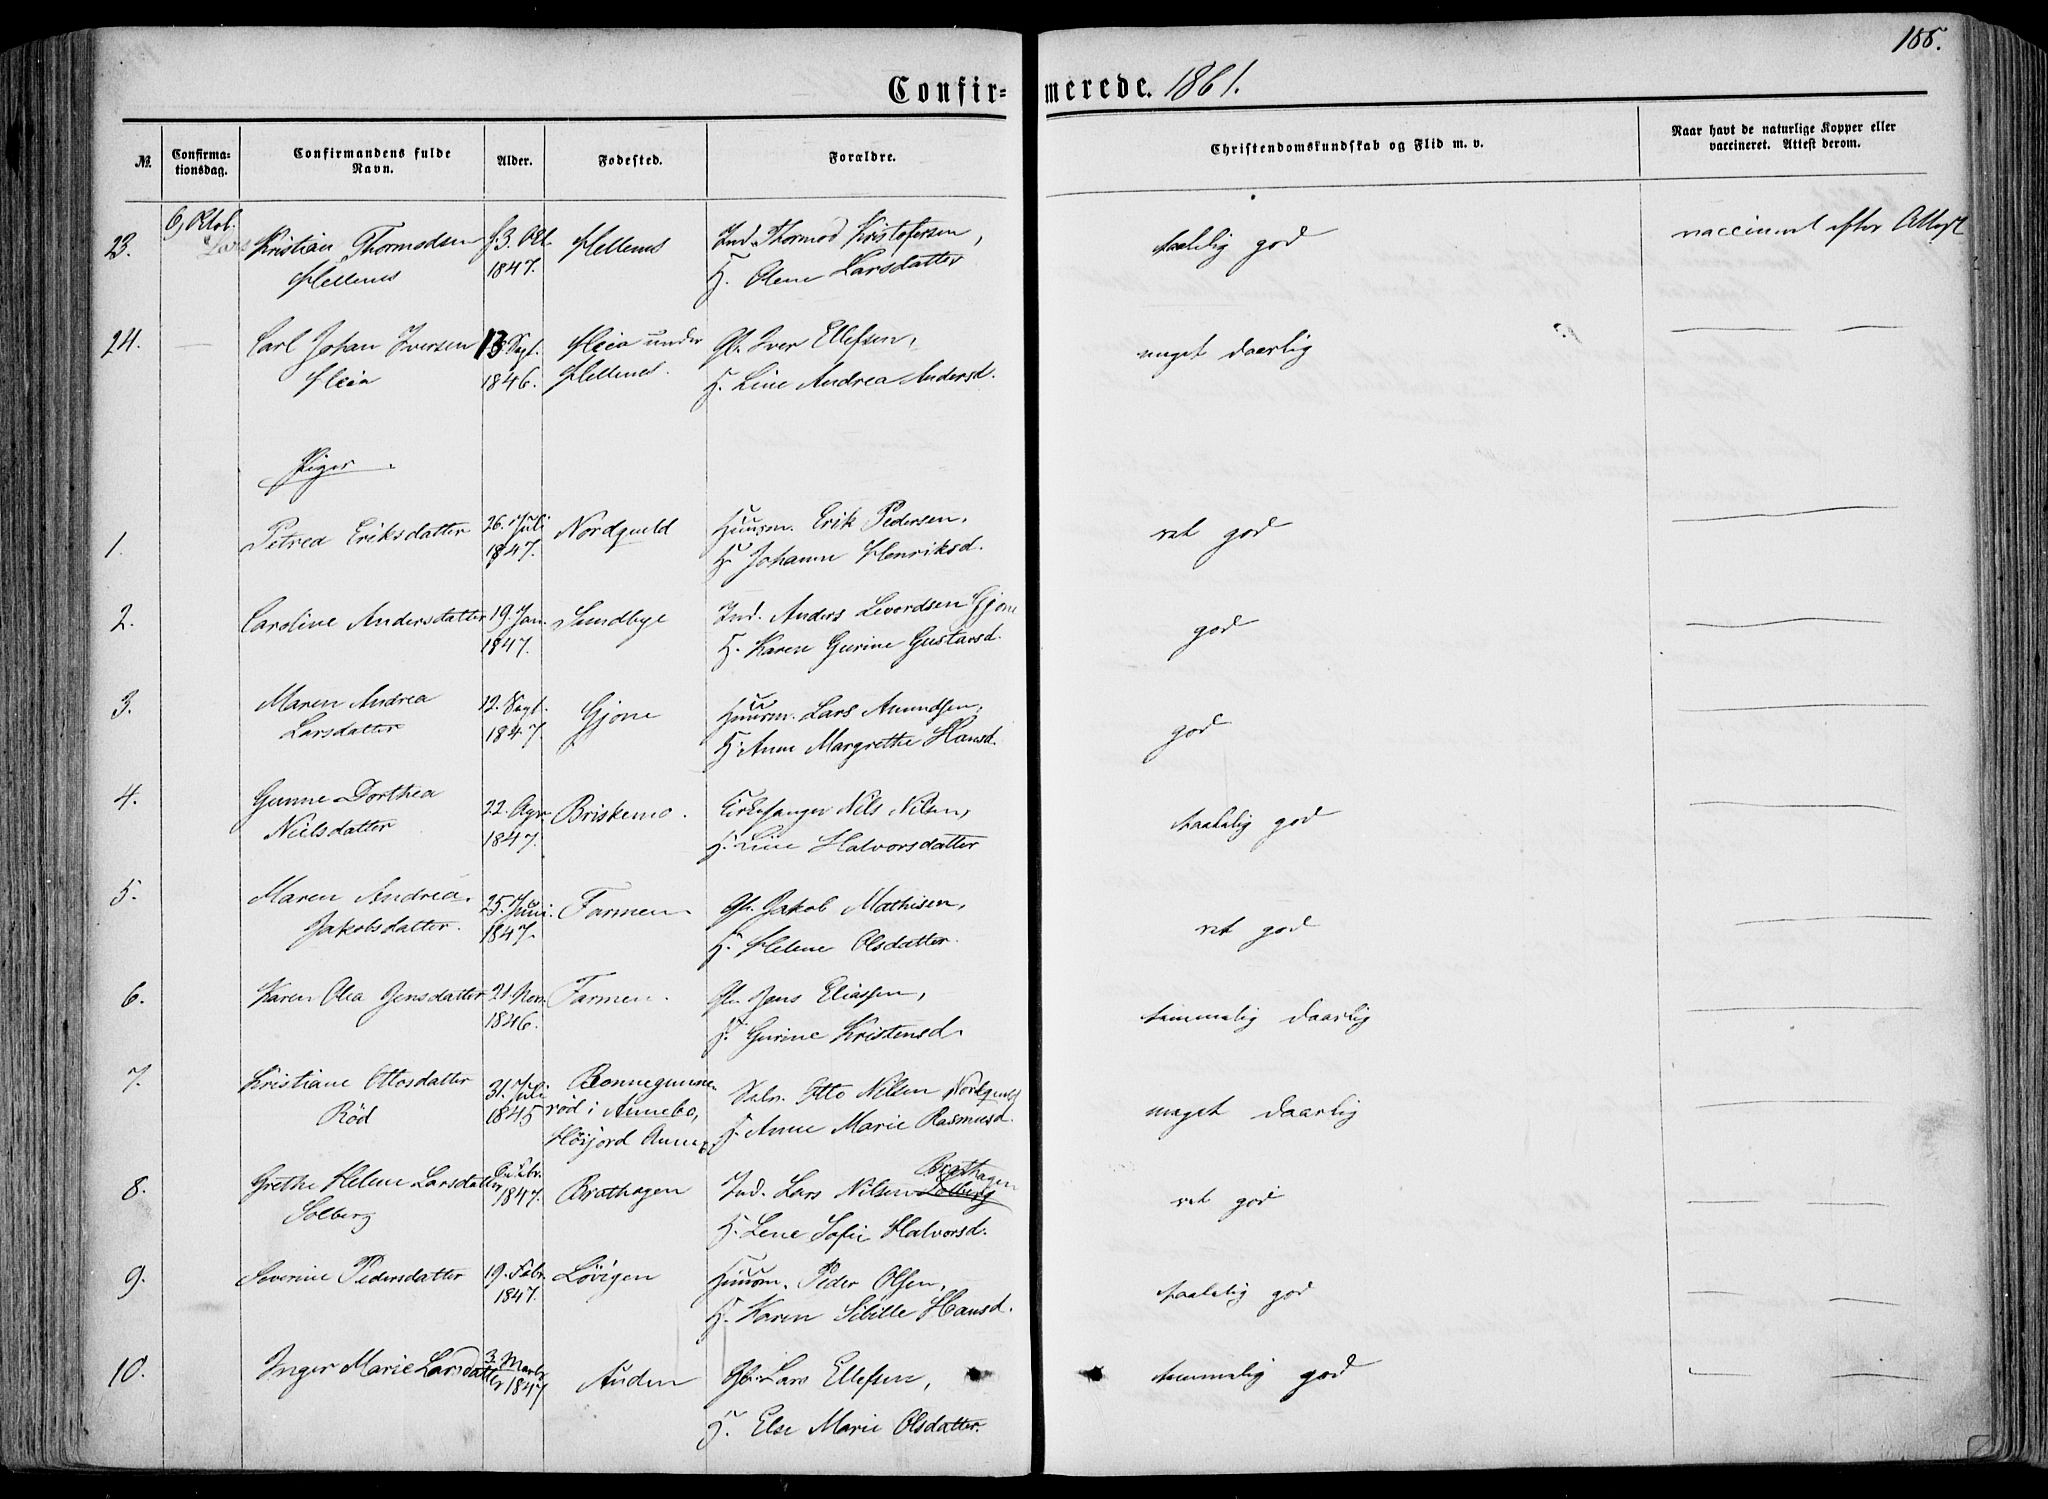 188.
Confir- merede. 1861.
№. Confirma-tionsdag. Confirmandens fulde Navn. Alder. Fodested. Forældre. Christendomskundskab og Flid m. v. Naar havt de naturlige Kopper eller vaccineret. Attest derom.
23. 6 Oktob. Lars Kristian Thormodsen 3. Okt. Hellenes Ind. Thormod Kristofersen, taalelig god vaccineret efter Attest
Hellenes 1847. H. Olene Larsdatter
24. — Carl Johan Iversen 13 Sept. Heia under Gb. Iver Ellefsen, meget daarlig — —
Heia 1846. Hellenes. H. Line Andrea Andersd.
Piger
1. Petrea Eriksdatter 26. Juli Nordqueld Huusm. Erik Pedersen, ret god —
1847. H. Johanne Henriksd.
2. Caroline Andersdatter 19. Jan. Sundbye Ind. Anders Levordsen Gjone god —
1847. H. Karen Gurine Gustavsd.
3. Maren Andrea 12. Sept. Gjone Huusm. Lars Amundsen, god —
Larsdatter 1847. H. Anne Margrethe Hansd.
4. Gunne Dorthea 22. Apr. Briskemo. Kirkesanger Nils Nilsen, taalelig god —
Nielsdatter 1847. H. Line Halvorsdatter
5. Maren Andrea 25. Juni. Farmen Gb. Jakob Mathisen, ret god —
Jakobsdatter. 1847. H. Helene Olsdatter.
6. Karen Olea Jensdatter 21. Nov. Farmen. Gb. Jens Eliassen, temmelig daarlig —
1846. H. Gurine Kristensd.
7. Kristiane Ottosdatter 31. Juli Bonnegunne- Otto Nilsen Nordqueld meget daarlig —
Rød 1845 rød i Annebo, F. Anne Marie Rasmusd.
Høijord Annex
8. Grethe Helene Larsdatter Febr. Brathagen Ind. Lars Nilsen Solberg Brathagen ret god — —
Solberg 1847. H. Lene Sofie Halvorsd.
9. Severine Pedersdatter 19. Febr. Løvigen Huusm. Peder Olsen, taalelig god — —
1847. H. Karen Sibille Hansd.
10. Inger Marie Larsdatter 3. Marts Auden Gb. Lars Ellefsen, temmelig god — —
1847 H. Else Marie Olsdatter.